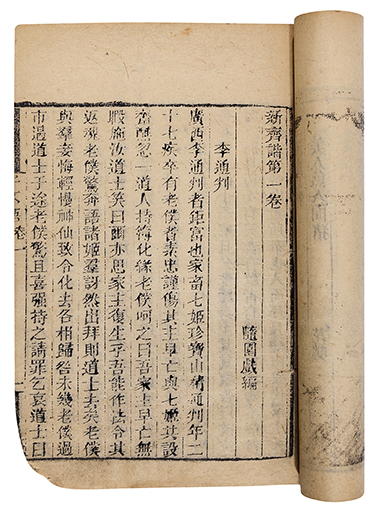 新齊諧第一卷
隨園戲編
李通判
廣西李通判者鉅富也家畜七姬珍寶山積通判年二
十七疾卒有老僕者素忠謹傷其主早亡與七姬共設
齋醮忽一道人持簿化緣老僕呵之曰吾家主早亡無
暇施汝道士笑曰爾亦思家主復生乎吾能作法令其
返魂老僕驚奔語諸姬羣訝然出拜則道士去矣老僕
與羣妾悔輕慢神仙致令化去各相歸咎未幾老僕過
市遇道士于途老僕驚且喜强持之請罪乞哀道士曰